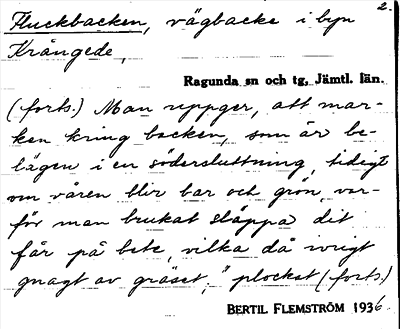 2.
Fluckbacken, vägbacke i byn
Krångede,
Ragunda sn och tg, Jämtl. län.
(forts.) Man uppger, att mar-
ken kring backen, som är be-
lägen i en södersluttning, tidigt
om våren blir bar och grön, var-
för man brukat släppa dit
får på bete, vilka då ivrigt
gnagt av gräset; "plockat (forts.)
BERTIL FLEMSTRÖM 1936.